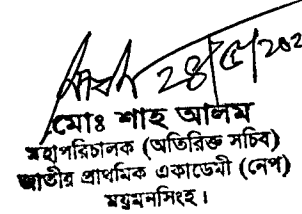 ২৪/৫/২০২
মোঃ শাহ আলম
মহাপরিচালক (অতিরিক্ত সচিব)
জাতীয় প্রাথমিক একাডেমী (নেপ)
ময়মনসিংহ।